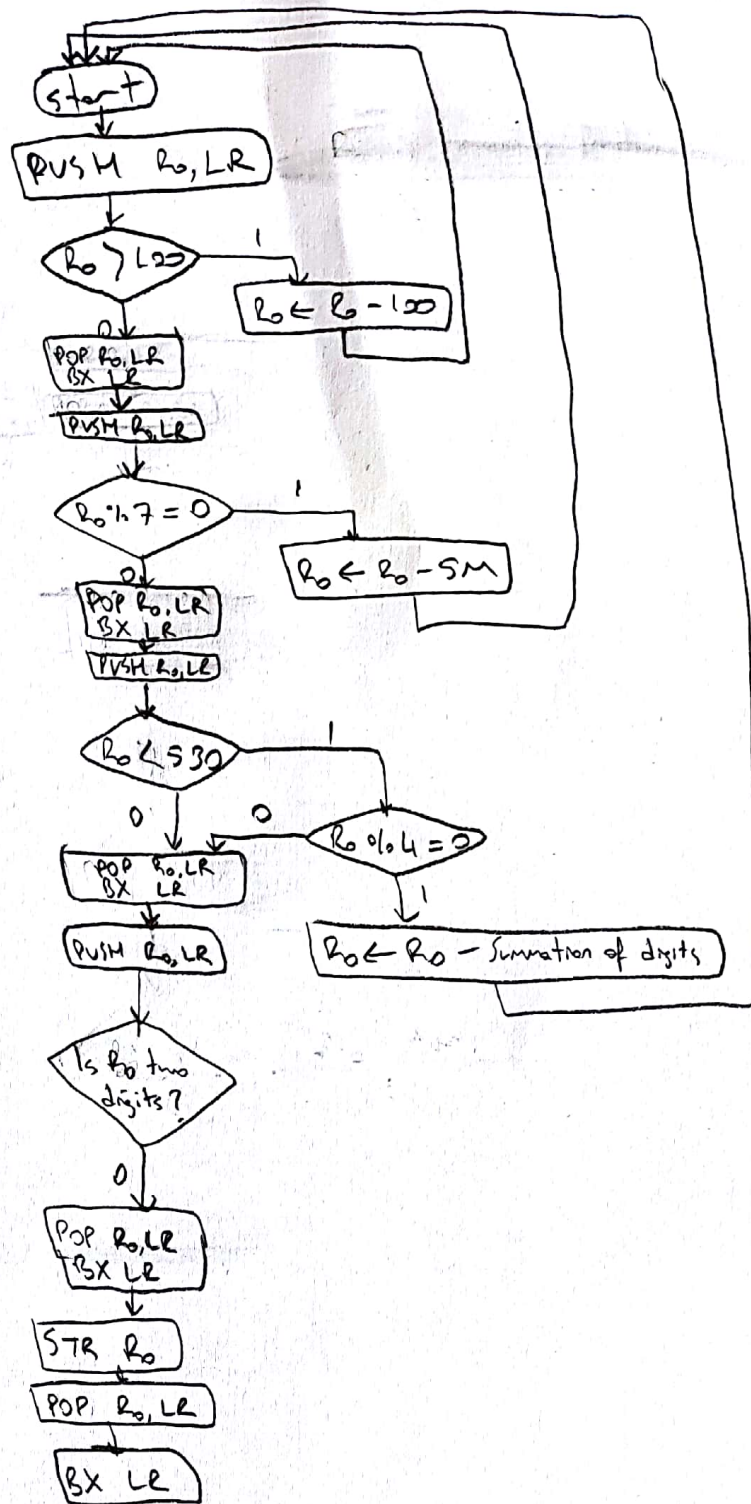 start
PUSH R0, LR
R0 > 100
1
R0 ← R0 - 100
0
POP R0, LR
BX LR
PUSH R0, LR
R0 % 7 = 0
1
R0 ← R0 - SM
0
POP R0, LR
BX LR
PUSH R0, LR
R0 < 530
1
0
0
R0 % 4 = 0
POP R0, LR
BX LR
1
PUSH R0, LR
R0 ← R0 - Summation of digits
Is R0 two
digits?
0
POP R0, LR
BX LR
STR R0
POP R0, LR
BX LR